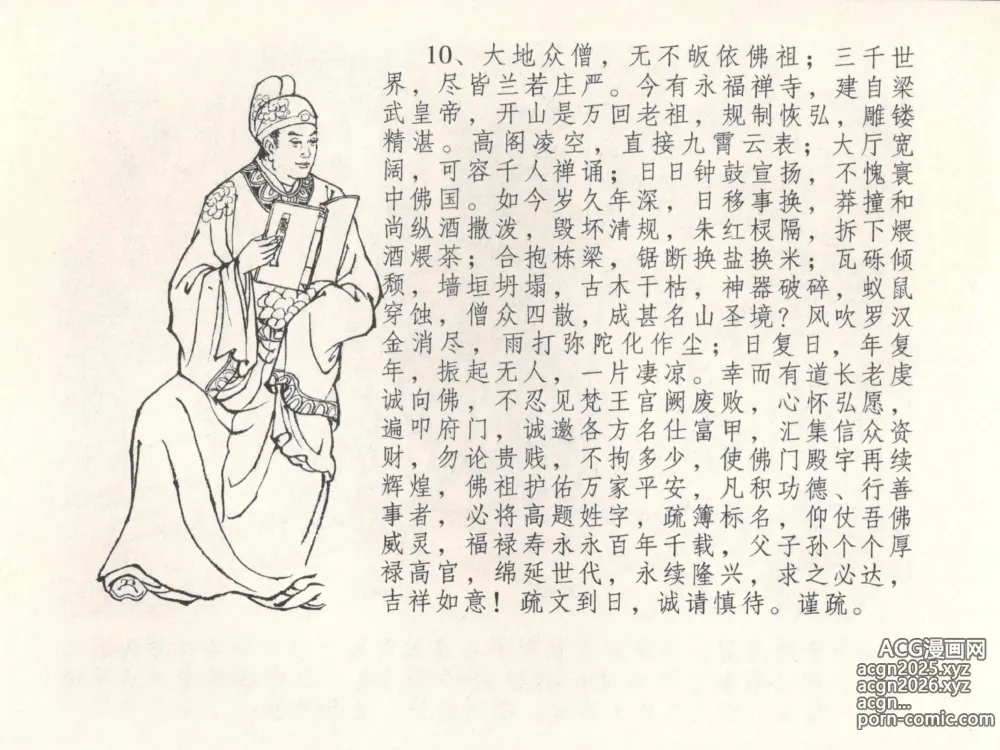 10、大地众僧，无不皈依佛祖；三千世
界，尽皆兰若庄严。今有永福禅寺，建自梁
武皇帝，开山是万回老祖，规制恢弘，雕镂
精湛。高阁凌空，直接九霄云表；大厅宽
阔，可容千人禅诵；日日钟鼓宣扬，不愧寰
中佛国。如今岁久年深，日移事换，莽撞和
尚纵酒撒泼，毁坏清规，朱红棂隔，拆下煨
酒煨茶；合抱栋梁，锯断换盐换米；瓦砾倾
颓，墙垣坍塌，古木干枯，神器破碎，蚁鼠
穿蚀，僧众四散，成甚名山圣境？风吹罗汉
金消尽，雨打弥陀化作尘；日复日，年复
年，振起无人，一片凄凉。幸而有道长老虔
诚向佛，不忍见梵王宫阙废败，心怀弘愿，
遍叩府门，诚邀各方名仕富甲，汇集信众资
财，勿论贵贱，不拘多少，使佛门殿宇再续
辉煌，佛祖护佑万家平安，凡积功德、行善
事者，必将高题姓字，疏簿标名，仰仗吾佛
威灵，福禄寿永永百年千载，父子孙个个厚
禄高官，绵延世代，永续隆兴，求之必达，
吉祥如意！疏文到日，诚请慎待。谨疏。
ACG漫画网
acgn2025.xyz
acgn2026.xyz
acgn...
porn-comic.com